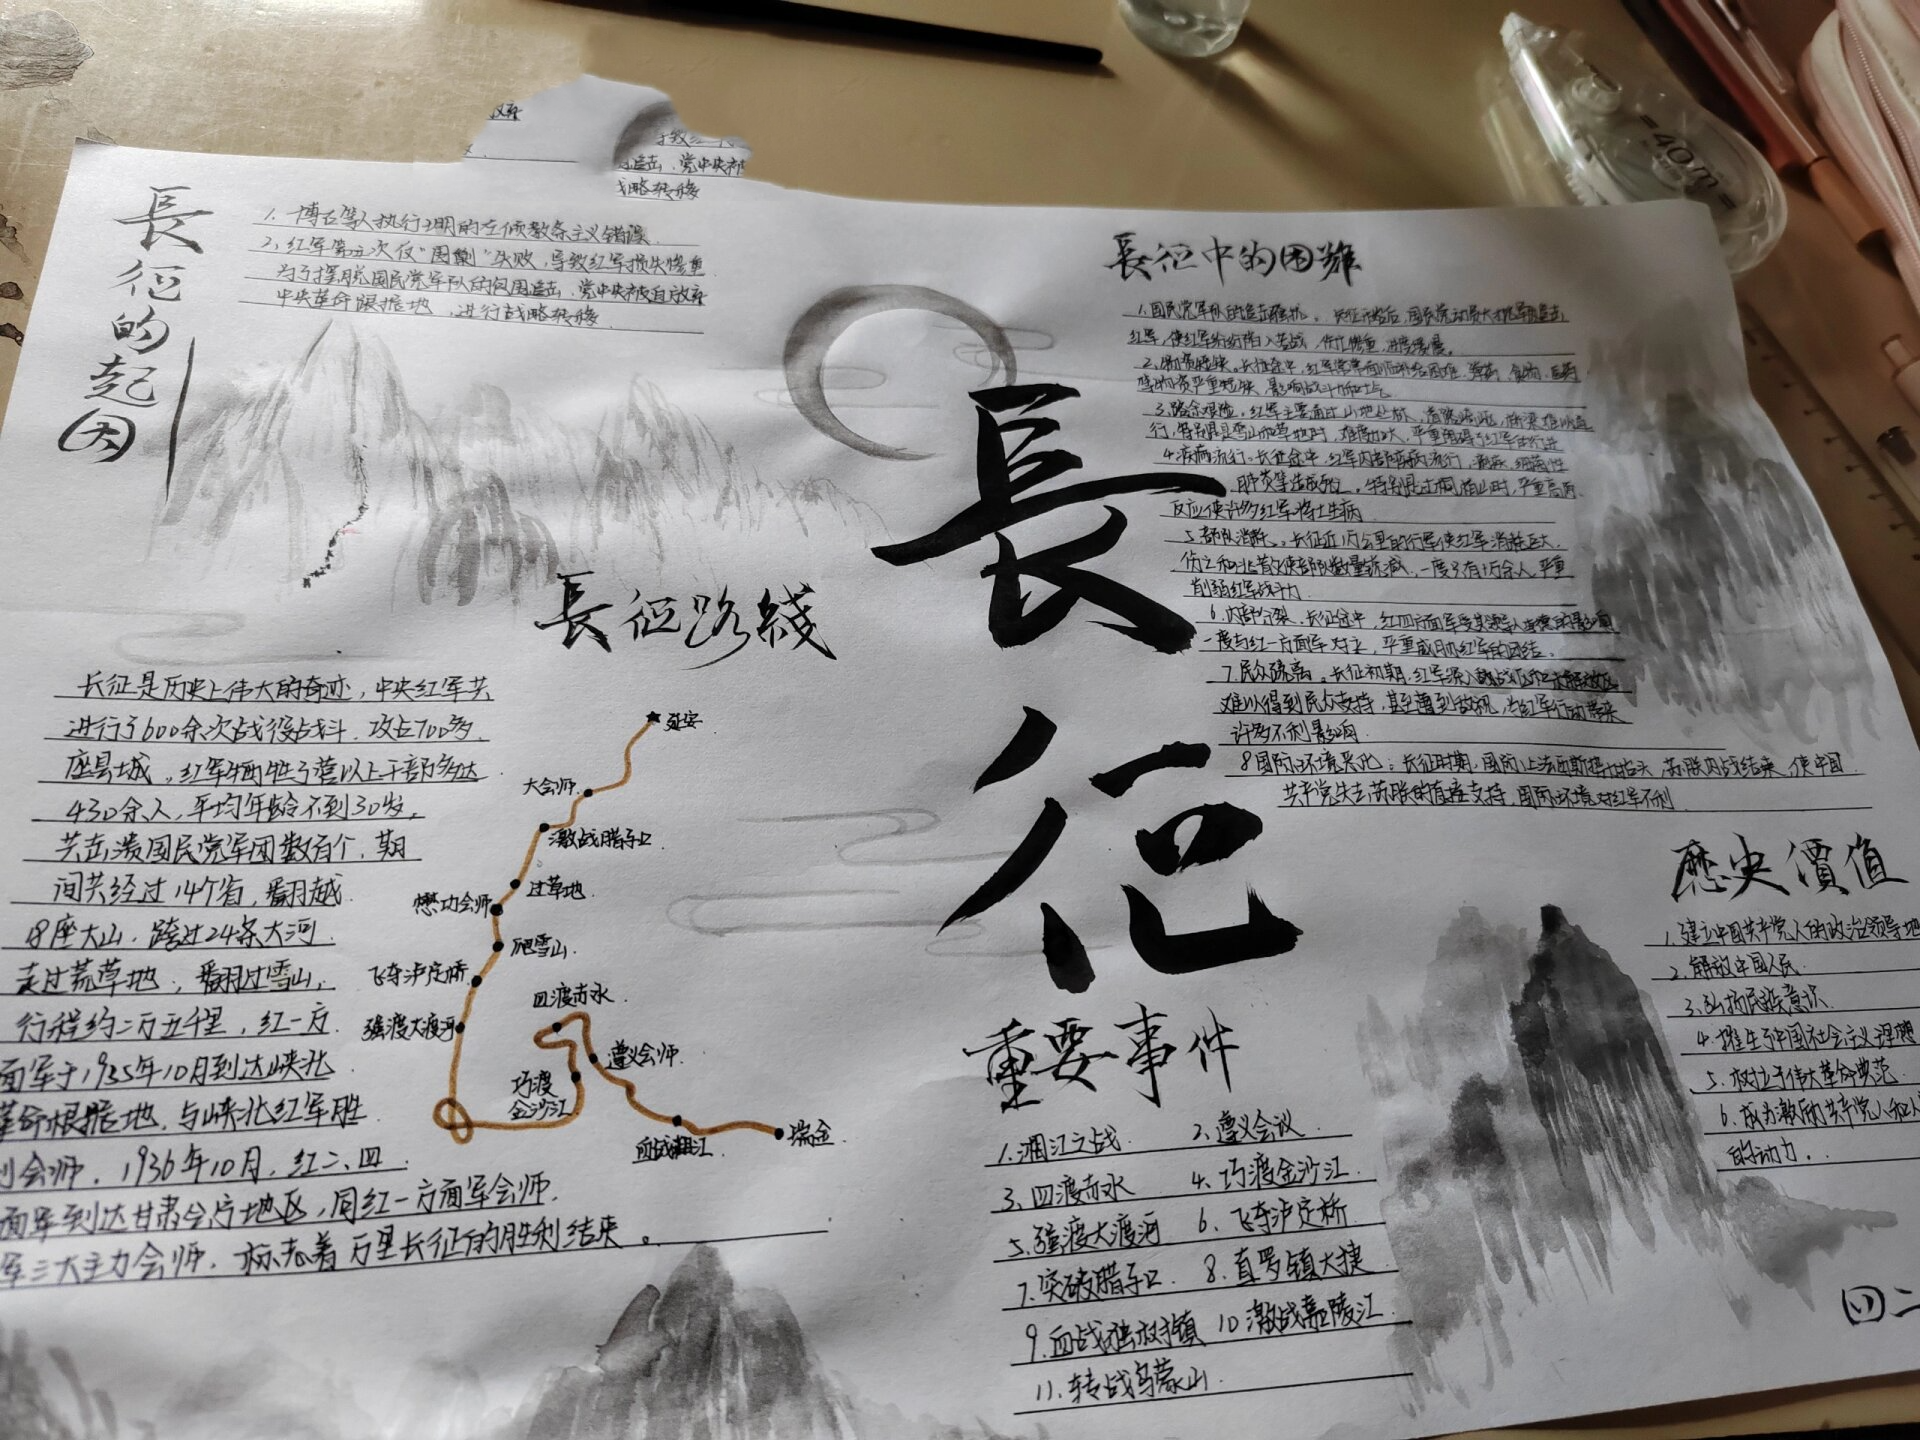 長征的起因
1. 博古等人执行王明的左倾教条主义错误
2. 红军第五次反“围剿”失败，导致红军损失惨重
为了摆脱国民党军队的包围追击，党中央被迫放弃
中央革命根据地，进行战略转移
追击，党中央被
战略转移
長征路綫
长征是历史上伟大的奇迹，中央红军共
进行了600余次战役战斗，攻占700多
座县城，红军牺牲了营以上干部多达
430余人，平均年龄不到30岁，
共击溃国民党军团数百个，期
间共经过14个省，翻越
18座大山，跨过24条大河
走过荒草地，翻过雪山，
行程约二万五千里，红一方
面军于1935年10月到达峡北
革命根据地，与峡北红军胜
利会师，1936年10月，红二、四
面军到达甘肃会宁地区，同红一方面军会师
军三大主力会师，标志着万里长征的胜利结束。
延安
大会师
激战腊子口
过草地
懋功会师
爬雪山
飞夺泸定桥
强渡大渡河
四渡赤水
遵义会师
巧渡
金沙江
血战湘江
瑞金
長征
長征中的困難
1.国民党军队的追击骚扰。长征开始后，国民党动员大批军队追击
红军，使红军纷纷陷入苦战，伤亡惨重，进度缓慢。
2.物资短缺。长征途中，红军常常面临补给困难，弹药、食物、医药
等物资严重短缺，影响战斗力和士气
3.路途艰险。红军主要通过山地丛林，道路崎岖，桥梁难以通
行，特别是雪山和草地时，难度加大，严重阻碍了红军的行进
4.疾病流行。长征途中，红军内部疾病流行，细菌性
肺炎等造成死亡。特别是过雪山时，严重高原
反应使许多红军将士生病
5.部队消耗。长征近1万公里的行军使红军消耗巨大，
伤亡和 使部队数量锐减，一度只有1万余人，严重
削弱红军战斗力
6.内部分裂。长征途中，红四方面军受其领导人 的影响
一度与红一方面军对立，严重威胁红军的团结。
7.民众疏离。长征初期，红军深入
难以得到民众支持，甚至遭到敌视，给红军行动带来
许多不利影响
8国际环境恶化。长征时期，国际上法西斯势力抬头，苏联内战结束，使中国
共产党失去苏联的直接支持，国际环境对红军不利
歷史價值
1.建立中国共产党人的政治领导地
2.解放中国人民
3.弘扬民族意识
4.催生了中国社会主义理想
5.树立了伟大革命典范
6.成为激励共产党人和人
的动力。
重要事件
1.湘江之战 2.遵义会议
3.四渡赤水 4.巧渡金沙江
5.强渡大渡河 6.飞夺泸定桥
7.突破腊子口 8.直罗镇大捷
9.血战独树镇 10激战嘉陵江
11.转战乌蒙山
四二
40m